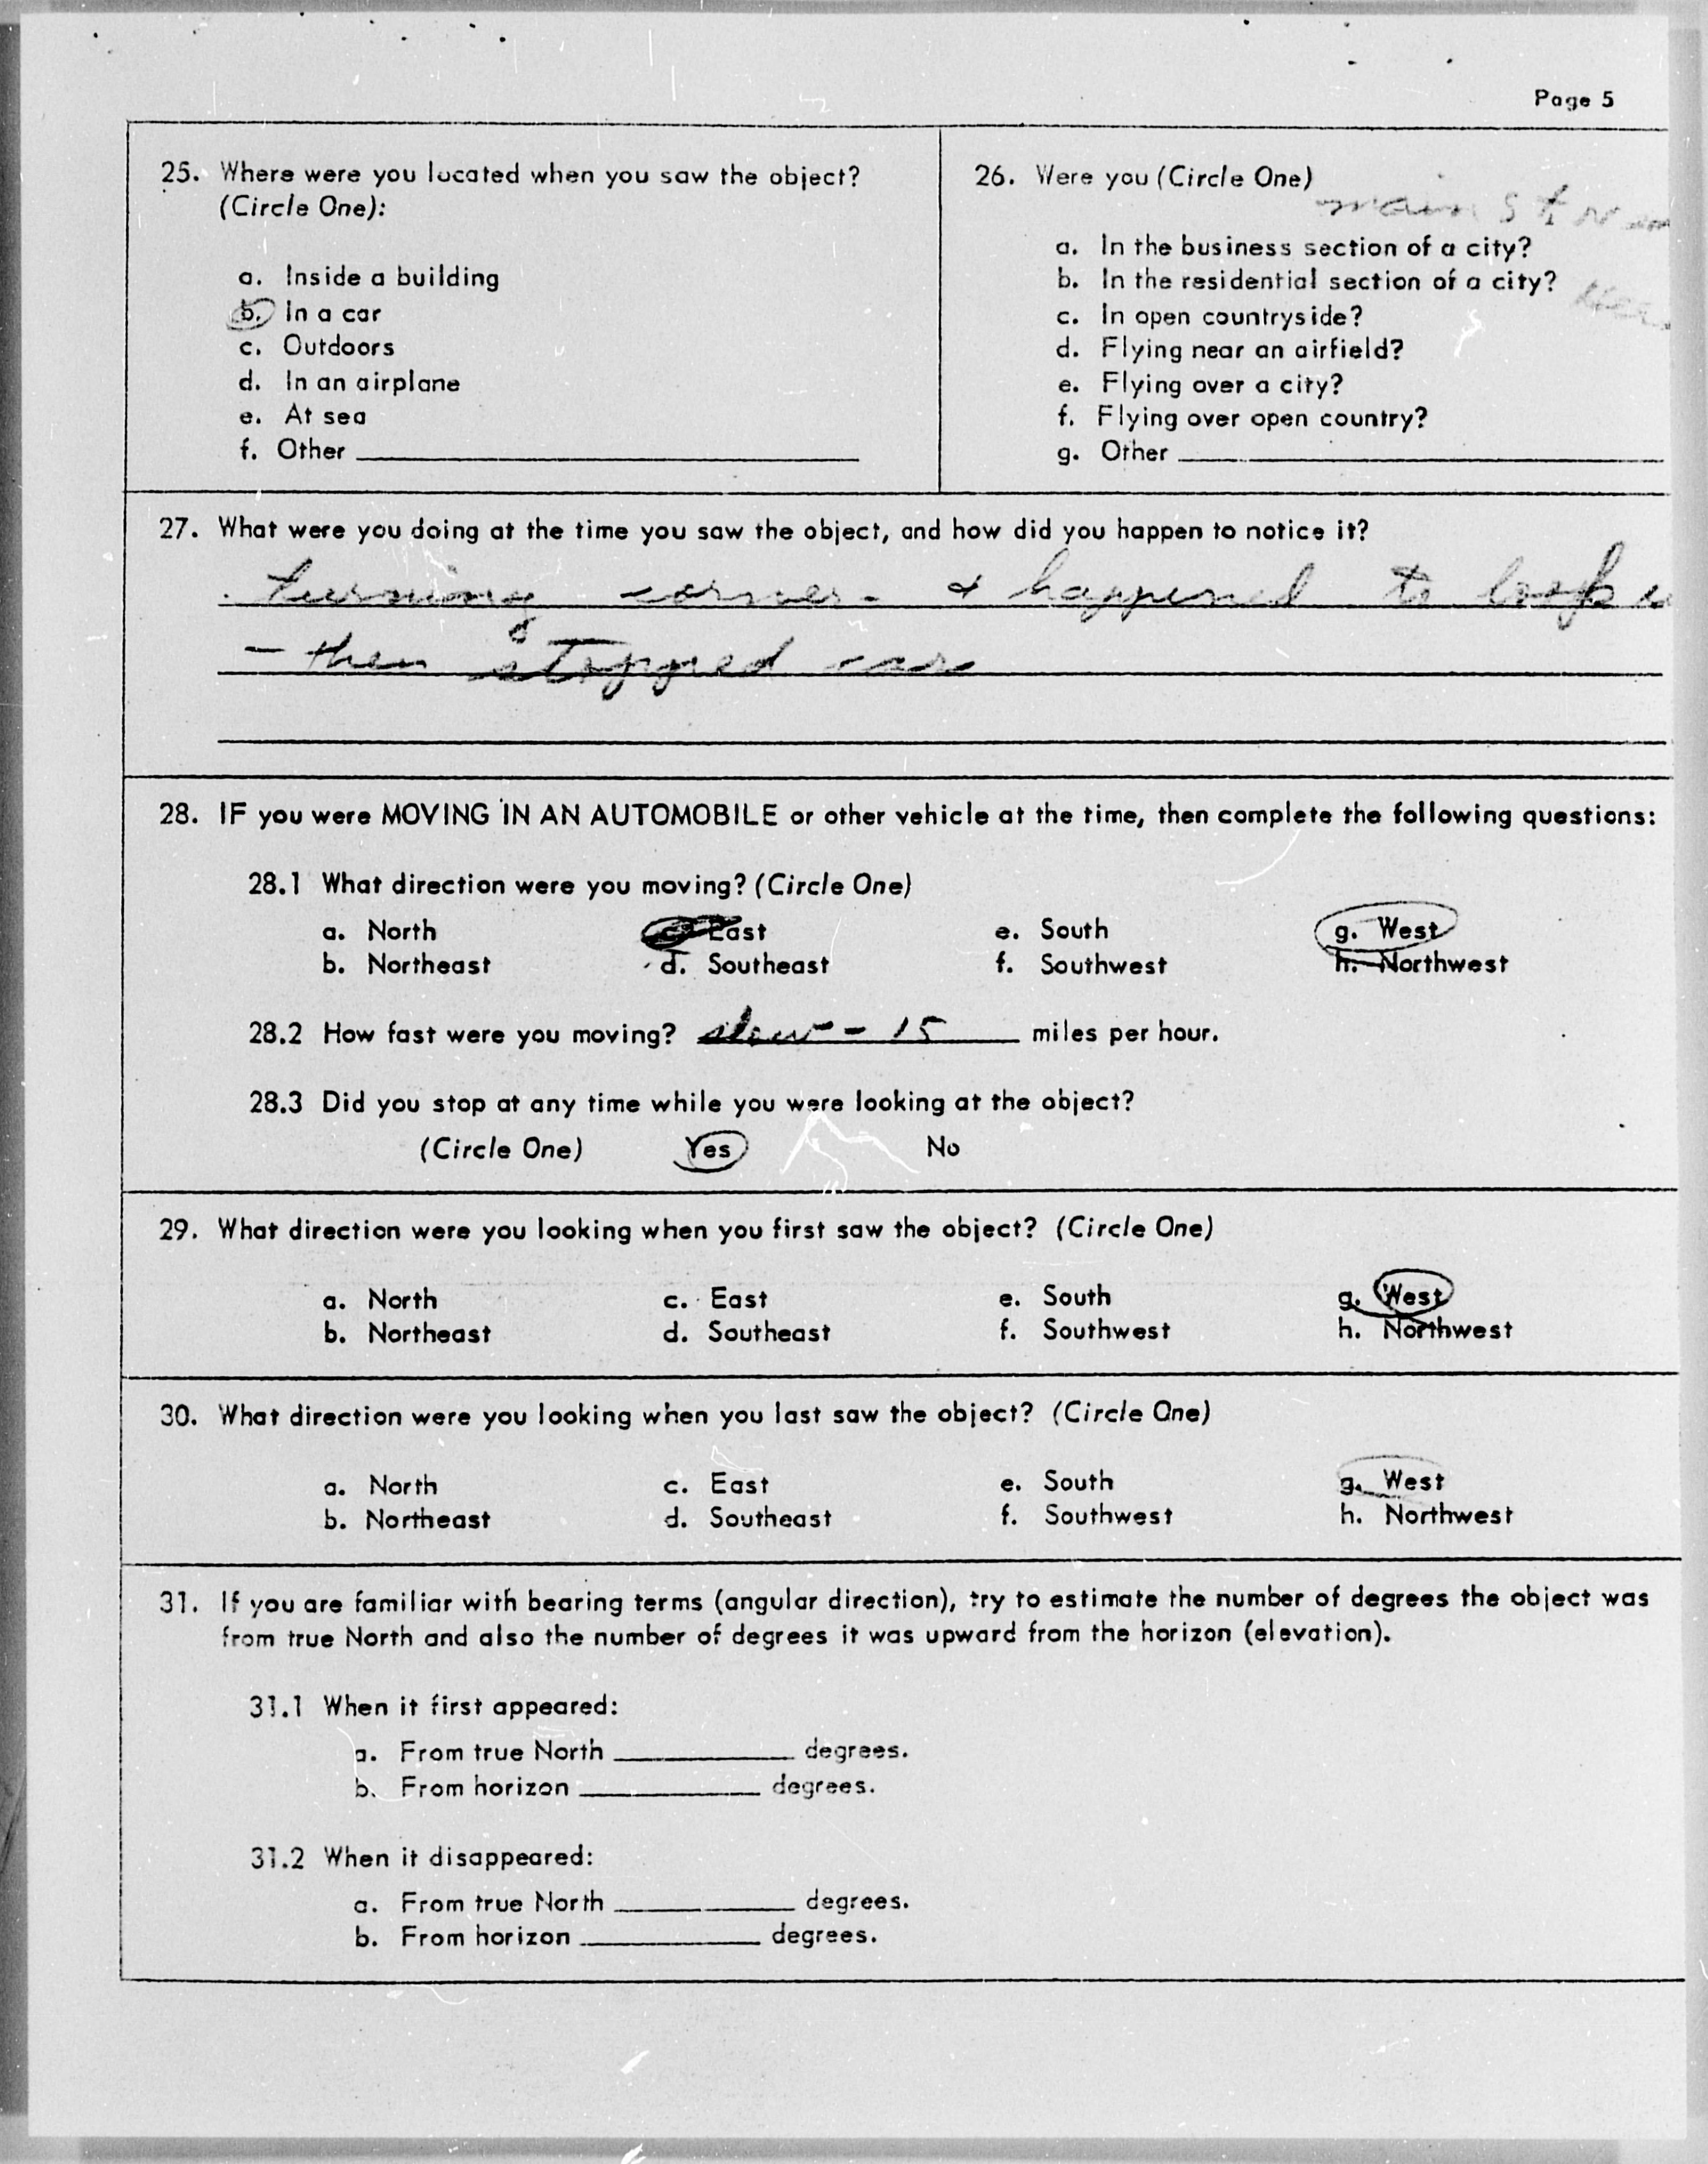 Page 5
25. Where were you located when you saw the object?
(Circle One):
a. Inside a building
b. In a car
c. Outdoors
d. In an airplane
e. At sea
f. Other
26. Were you (Circle One)
main St
a. In the business section of a city?
b. In the residential section of a city?
c. In open countryside?
d. Flying near an airfield?
e. Flying over a city?
f. Flying over open country?
g. Other
27. What were you doing at the time you saw the object, and how did you happen to notice it?
turning corner - & happened to look
- then stopped car
28. IF you were MOVING IN AN AUTOMOBILE or other vehicle at the time, then complete the following questions:
28.1 What direction were you moving? (Circle One)
a. North c. East e. South g. West
b. Northeast d. Southeast f. Southwest h. Northwest
28.2 How fast were you moving? slow - 15 miles per hour.
28.3 Did you stop at any time while you were looking at the object?
(Circle One) Yes No
29. What direction were you looking when you first saw the object? (Circle One)
a. North c. East e. South g. West
b. Northeast d. Southeast f. Southwest h. Northwest
30. What direction were you looking when you last saw the object? (Circle One)
a. North c. East e. South g. West
b. Northeast d. Southeast f. Southwest h. Northwest
31. If you are familiar with bearing terms (angular direction), try to estimate the number of degrees the object was
from true North and also the number of degrees it was upward from the horizon (elevation).
31.1 When it first appeared:
a. From true North degrees.
b. From horizon degrees.
31.2 When it disappeared:
a. From true North degrees.
b. From horizon degrees.